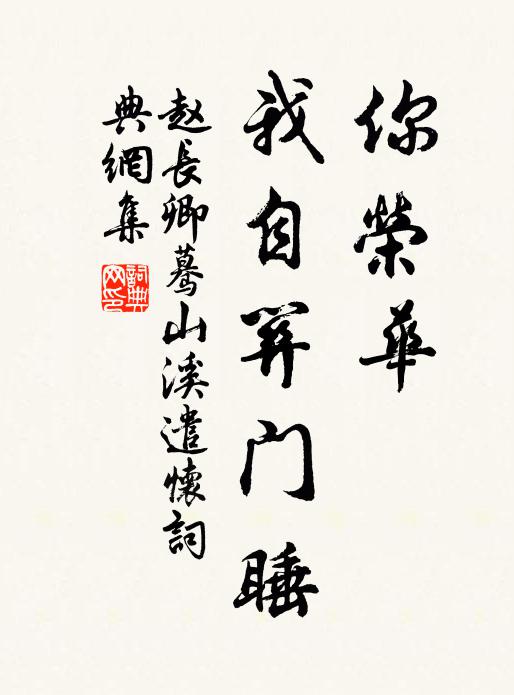 你榮華
我自關門睡
赵長卿驀山溪遣懷詞
典網集
詞典
网印